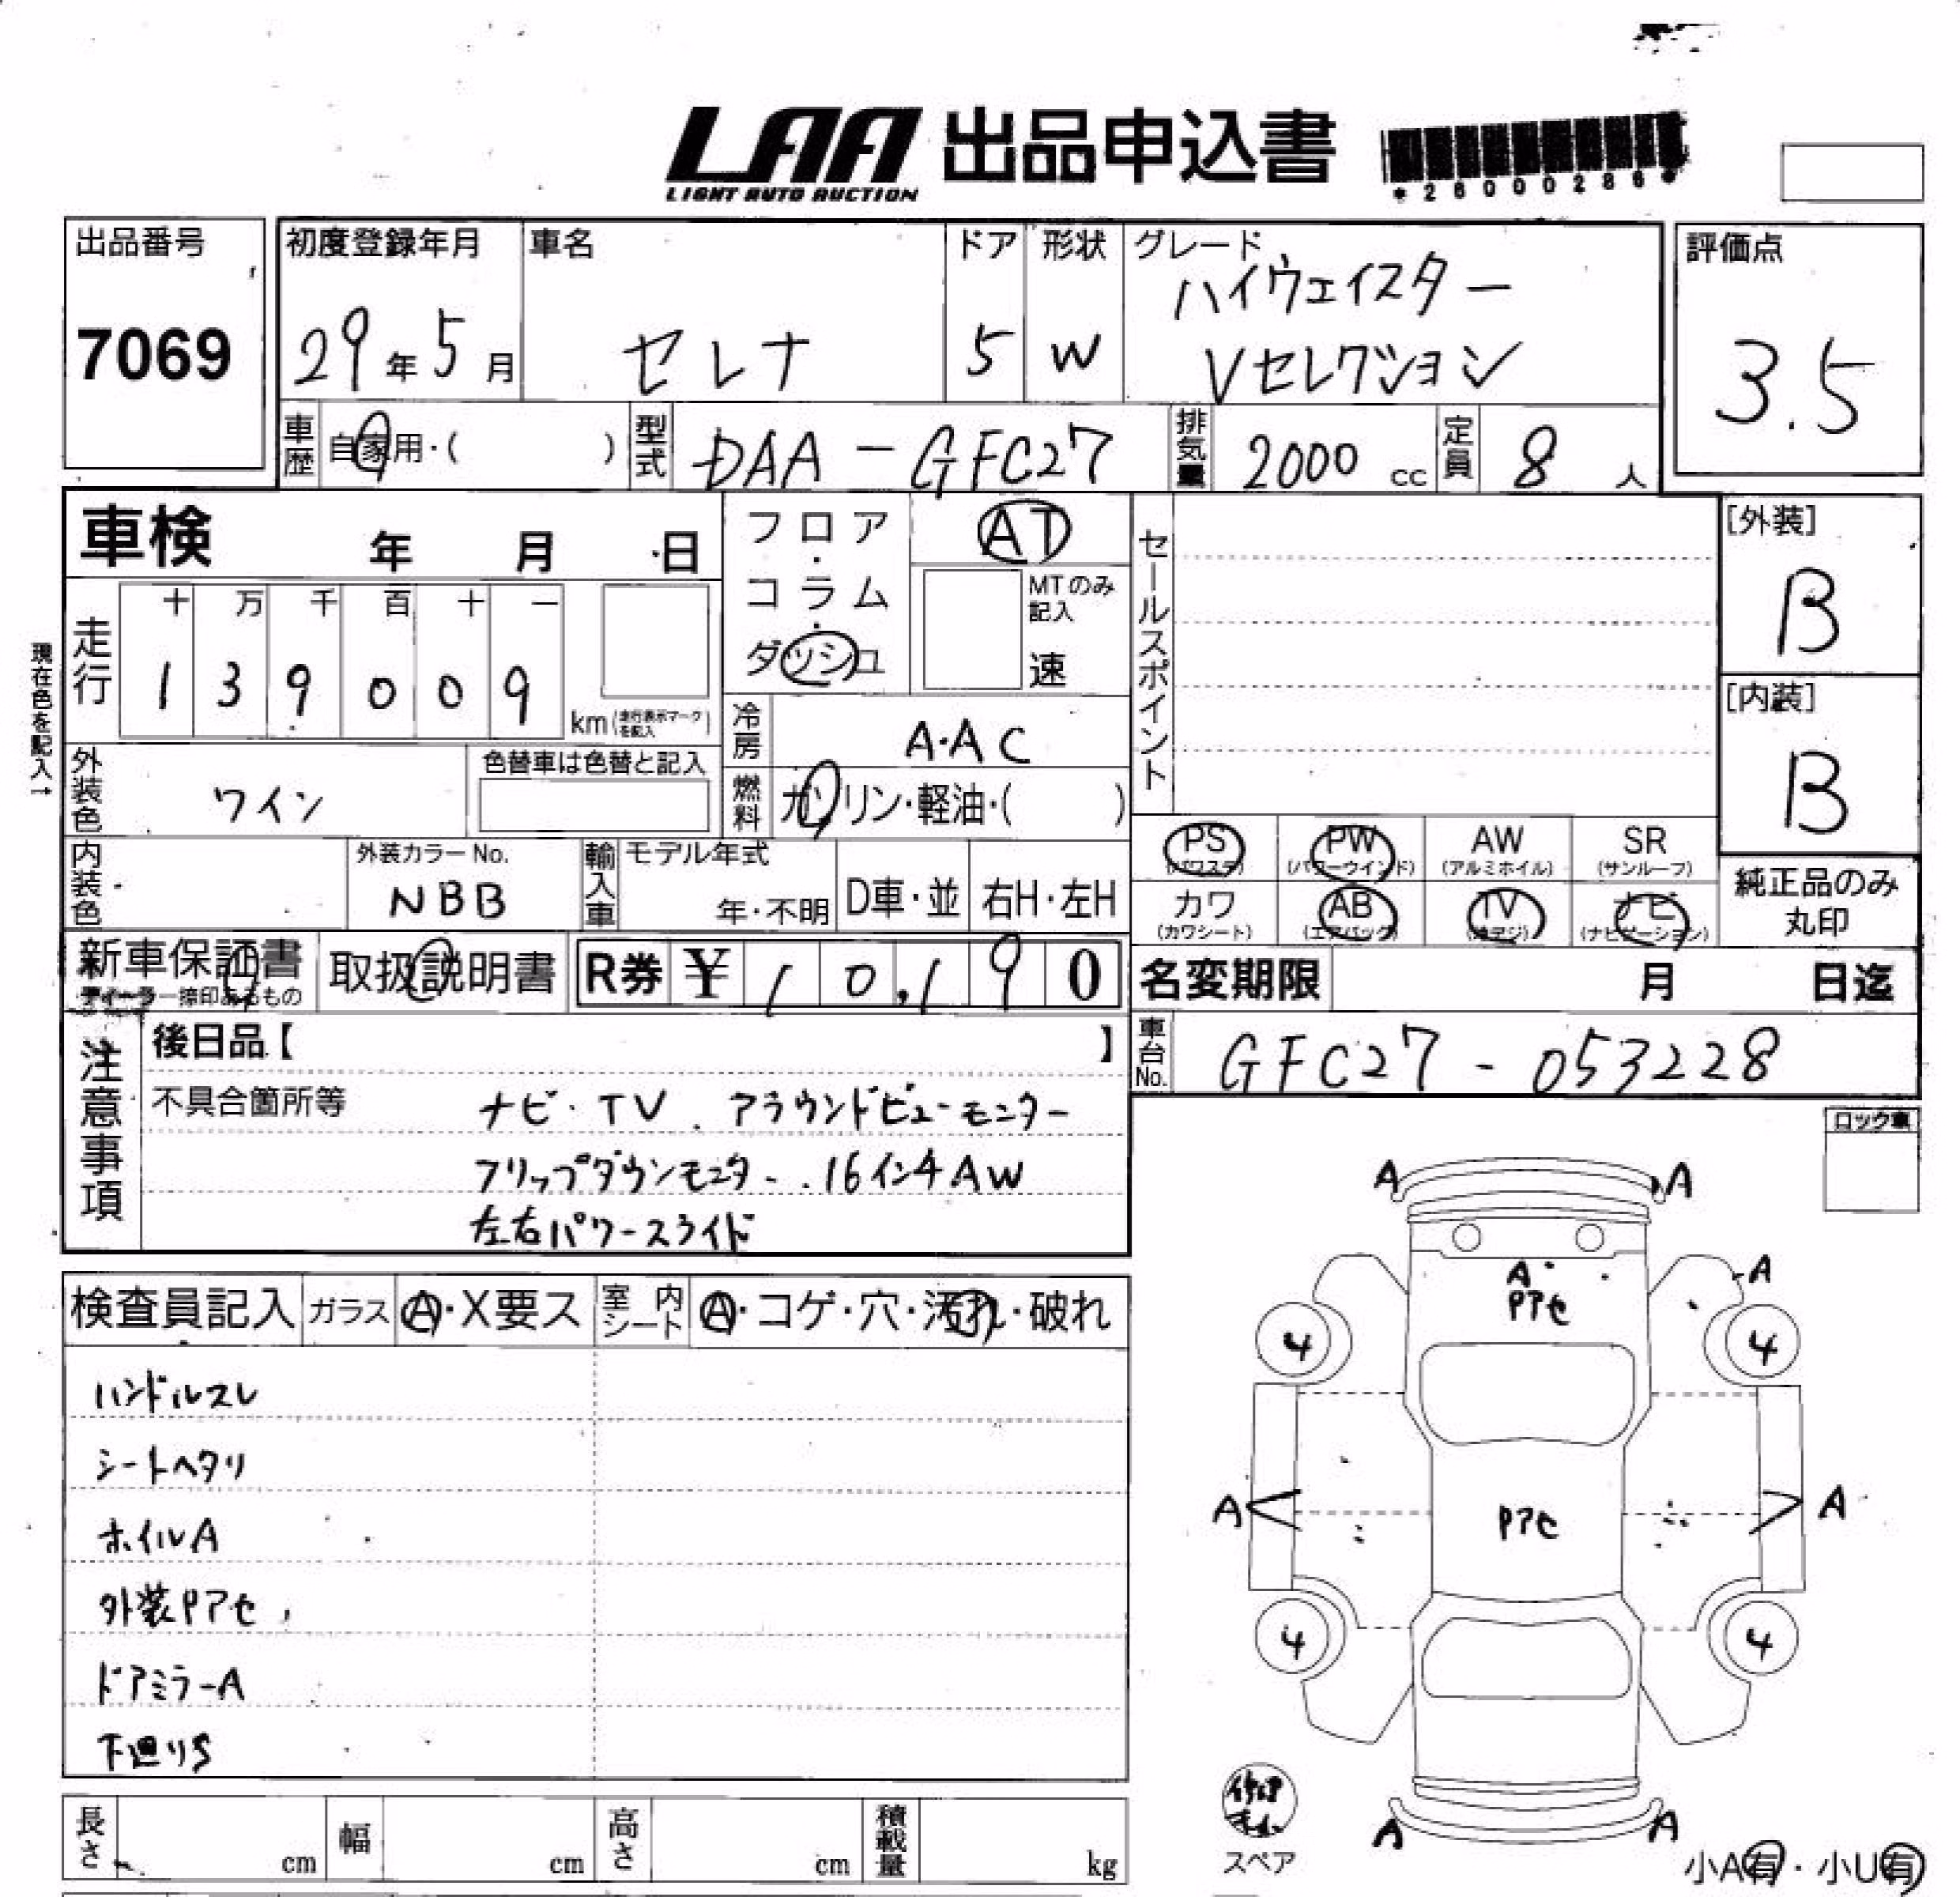 LAA 出品申込書
LIGHT AUTO AUCTION
*26000286*
出品番号
7069
初度登録年月
29年5月
車名
セレナ
ドア
5
形状
W
グレード
ハイウェイスター
Vセレクション
評価点
3.5
車歴
自家用・( )
型式
DAA-GFC27
排気量
2000 cc
定員
8 人
車検 年 月 日
現在色を記入→
走行
十 万 千 百 十 一
1 3 9 0 0 9
km(走行表示マークを記入)
フロア・コラム・ダッシュ
AT
MTのみ記入
速
冷房
A・AC
燃料
ガソリン・軽油・( )
外装色
ワイン
色替車は色替と記入
内装色
外装カラーNo.
NBB
輸入車
モデル年式
年・不明
D車・並
右H・左H
セールスポイント
[外装]
B
[内装]
B
PS
(パワステ)
PW
(パワーウインド)
AW
(アルミホイル)
SR
(サンルーフ)
カワ
(カワシート)
AB
(エアバック)
TV
(地デジ)
ナビ
(ナビゲーション)
純正品のみ
丸印
新車保証書
ディーラー捺印あるもの
取扱説明書
R券 ¥10,190
名変期限 月 日迄
車台No.
GFC27-053228
注意事項
後日品【 】
不具合箇所等
ナビ・TV. アラウンドビューモニター
フリップダウンモニター. 16インチAW
左右パワースライド
ロック車
検査員記入
ガラス
A・X要ス
室内シート
A・コゲ・穴・汚れ・破れ
ハンドルスレ
シートヘタリ
ホイルA
外装Pアセ
ドアミラーA
下廻りS
A A
A
Pアセ
A
4 4
A Pアセ A
4 4
A A
スペア
小A有・小U有
長さ cm
幅 cm
高さ cm
積載量 kg